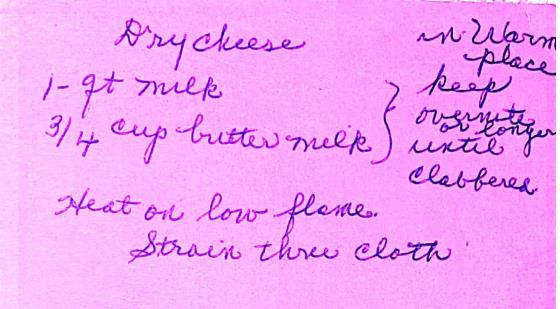 Dry cheese
1 - qt milk
3/4 cup butter milk
in Warm
place
keep
overnite
or longer
until
clabbered
Heat on low flame.
Strain thru cloth